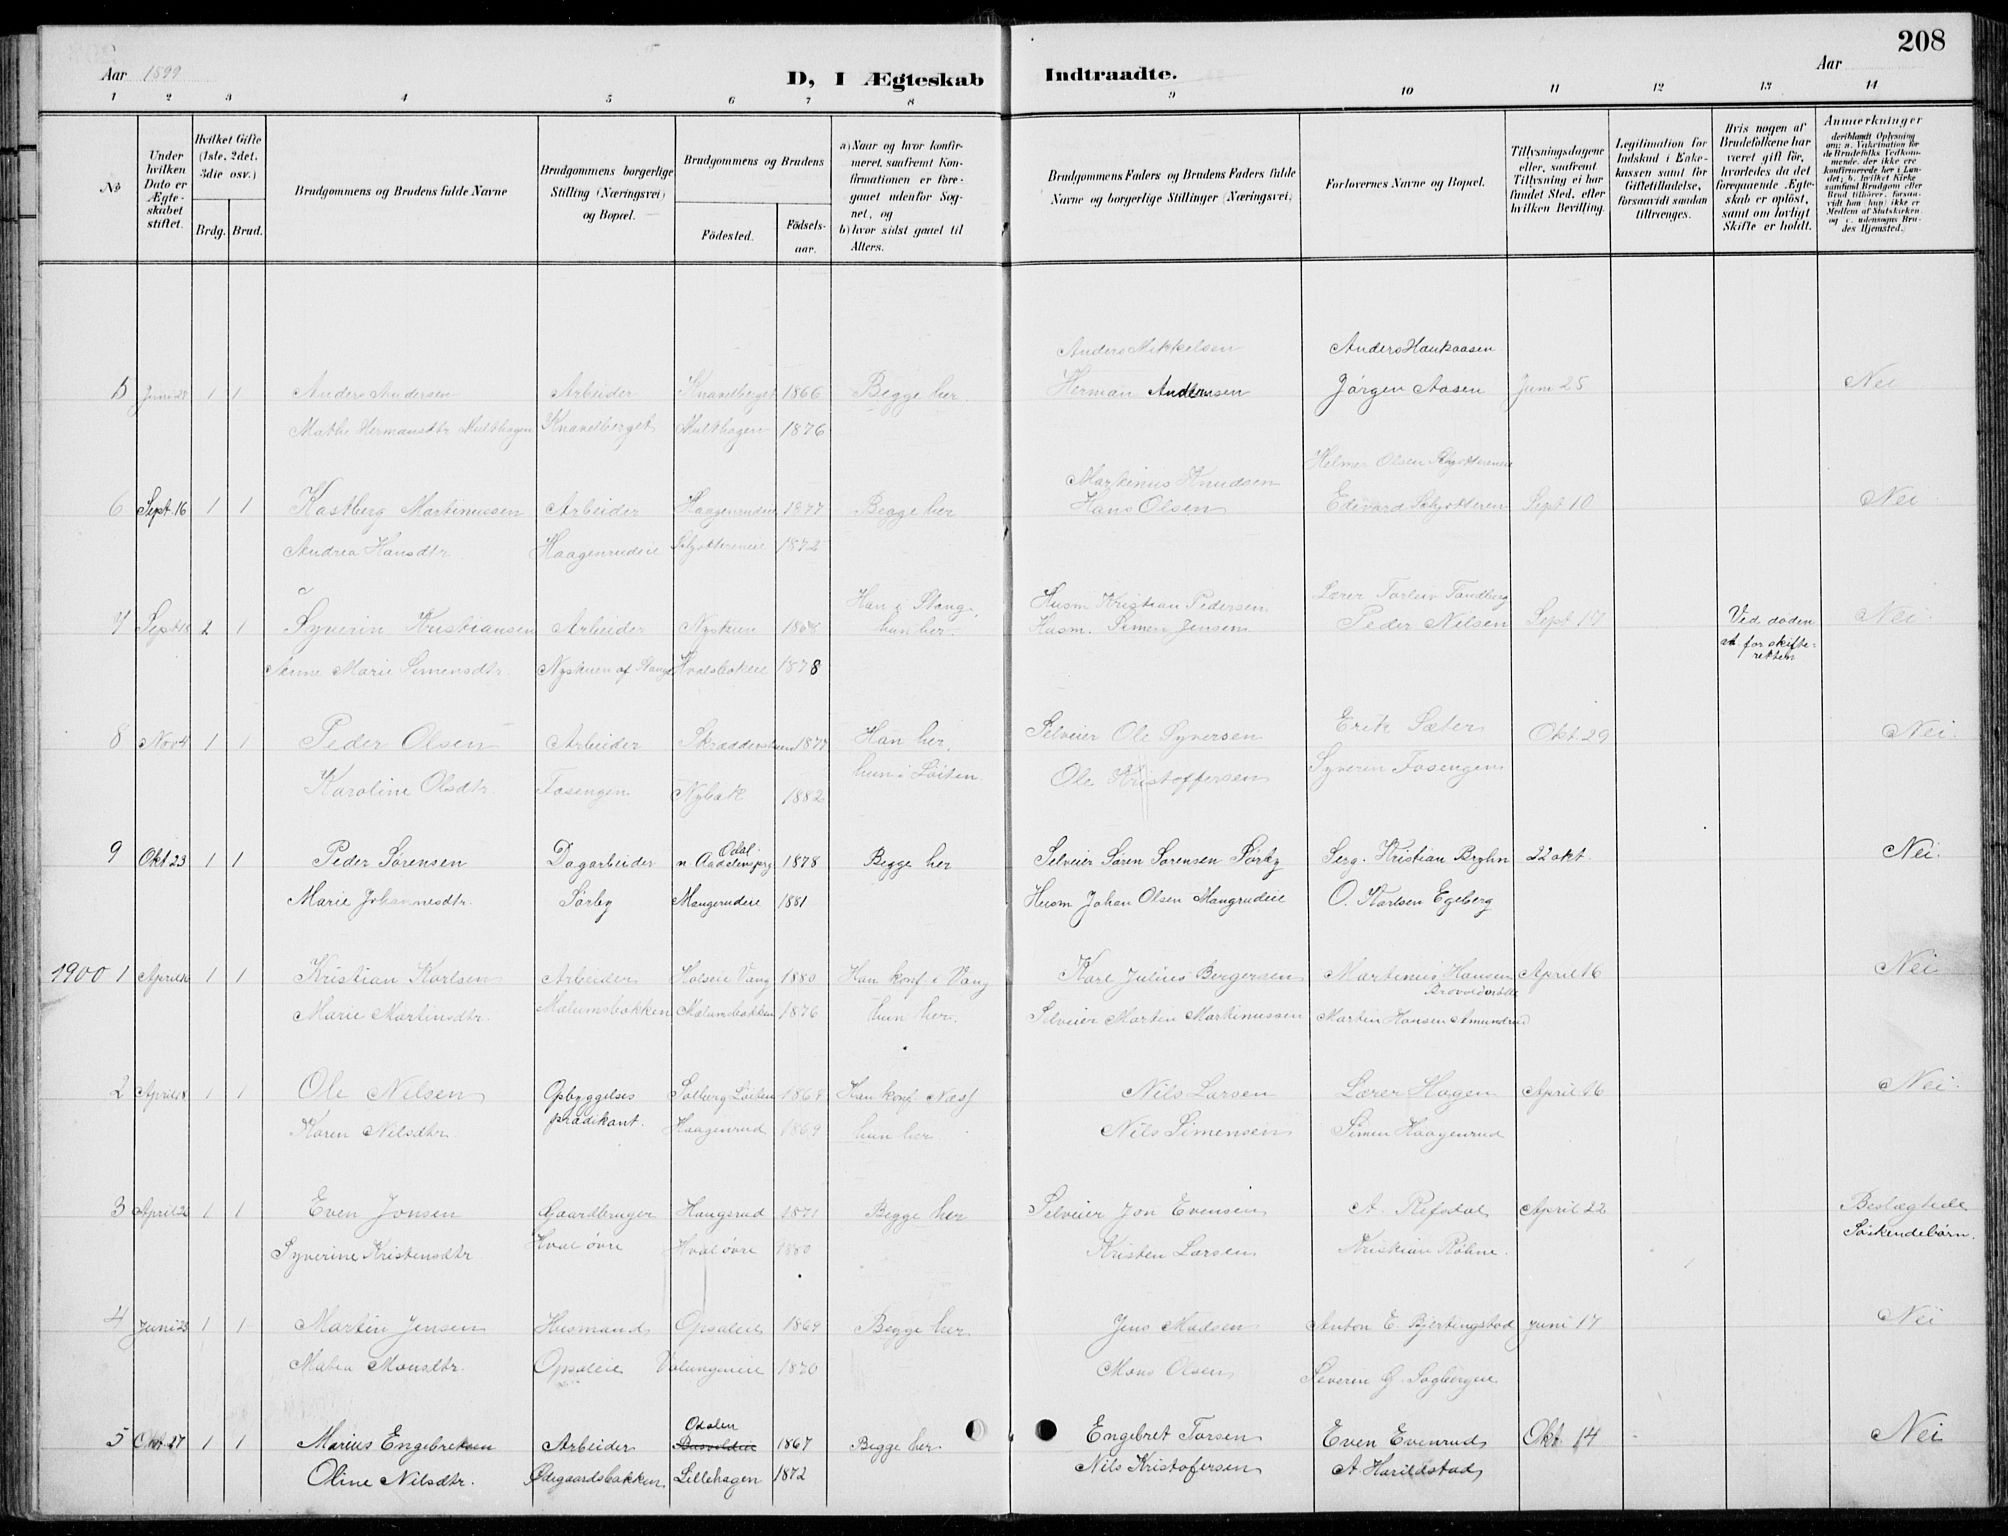 208
Aar 1899
D, I Ægteskab Indtraadte.
Aar
1 2 3 4 5 6 7 8 9 10 11 12 13 14
No
Under hvilken Dato er Ægteskabet stiftet.
Hvilket Gifte (1ste, 2det, 3die osv.)
Brdg. Brud.
Brudgommens og Brudens fulde Navne
Brudgommens borgerlige Stilling (Næringsvei) og Bopæl.
Brudgommens og Brudens
Fødested. Fødselsaar.
a) Naar og hvor konfirmeret, saafremt Konfirmationen er foregaaet udenfor Sognet, og
b) hvor sidst gaaet til Alters.
Brudgommens Faders og Brudens Faders fulde Navne og borgerlige Stillinger (Næringsvei)
Forlovernes Navne og Bopæl.
Tillysningsdagene eller, saafremt Tillysning ei har fundet Sted, efter hvilken Bevilling.
Legitimation for Indskud i Enkekassen samt for Giftetilladelse, forsaavidt saadan tiltrænges.
Hvis nogen af Brudefolkene har været gift før, hvorledes da det foregaaende Ægteskab er opløst, samt om lovligt Skifte er holdt.
Anmerkninger
deriblandt Oplysning om: a. Vakcination for de Brudefolks Vedkommende, der ikke ere konfirmerede her i Landet; b. hvilket Kirkesamfund Brudgom eller Brud tilhører, forsaavidt han (hun) ikke er Medlem af Statskirken og c. udensogns Brudes Hjemsted.
Anders Mikkelsen Anders Haukaasen
5 Juni 25 1 1 Anders Andersen Arbeider Knavelberget 1866 Begge her. Herman Andersen Jørgen Aasen Juni 25 Nei
Mathe Hermansdtr Multhagen Knavelberget Multhagen 1876
Martinus Knudsen Helmer Olsen
6 Sept. 16 1 1 Kastberg Martinussen Arbeider Haagenrudeie 1877 Begge her Hans Olsen Edvard Sept 10 Nei
Andrea Hansdtr Haagenrudeie 1872
Han i Stange, Husm Kristian Pedersen Lærer Torleiv Tandberg
7 Sept 18 2 1 Syverin Kristiansen Arbeider Nyskuen 1868 hun her. Husm. Simen Jensen Peder Nilsen Sept 17 Ved døden Nei.
Anne Marie Simensdtr. Nyskuen af Stange Hvalsbakeie 1878 for skifteretten
8 Nov 4 1 1 Peder Olsen Arbeider 1877 Han her, Selveier Ole Syversen Erik Sæter Okt 29 Nei.
Karoline Olsdtr. Fosengen Nybak 1882 hun i Løiten. Ole Kristoffersen Syverin Fosengen
9 Okt 23 1 1 Peder Sørensen Dagarbeider n. Odal 1878 Begge her Selveier Søren Sørensen Sørby Serg. Kristian Bryhn 22 okt. Nei.
Marie Johannesdtr. Sørby Mangerudeie 1881 Husm Johan Olsen Mangrudeie O. Karlsen Egeberg
1900 1 April 16 1 1 Kristian Karlsen Arbeider Holseie Vang 1880 Han konf. i Vang Karl Julius Bergersen Martinus Hansen April 16 Nei
Marie Martinsdtr. Malumsbakken Malumsbakken 1876 hun her. Selveier Martin Martinussen Martin Hansen Amundrud
2 April 18 1 1 Ole Nilsen Opbyggelses Solberg Løiten 1864 Han konf Næs Nils Larsen Lærer Hagen April 16 Nei.
Karen Nilsdtr. prædikant. Haagenrud 1869 hun her Nils Simensen Simen Haagenrud
3 April 26 1 1 Even Jonsen Gaardbruger Haugsrud 1871 Begge her Selveier Jon Evensen A. Refsdal April 22 Beslægtede
Syverine Kristensdtr. Hval øvre Hval øvre 1880 Kristen Larsen Kristian Røhne. Søskendebørn.
4 Juni 23 1 1 Martin Jensen Husmand Opsaleie 1864 Begge her Jens Madsen Anton E. Bjertingstad Juni 17 Nei
Matea Monsdtr. Opsaleie 1870 Mons Olsen Severin G. Sagbergen
5 Okt 27 1 1 Marius Engebretsen Arbeider Odalen 1867 Begge her Engebret Torsen Even Evenrud Okt 14 Nei
Oline Nilsdtr. Ødegaardsbakken Lillehagen 1872 Nils Kristofersen A. Harildstad